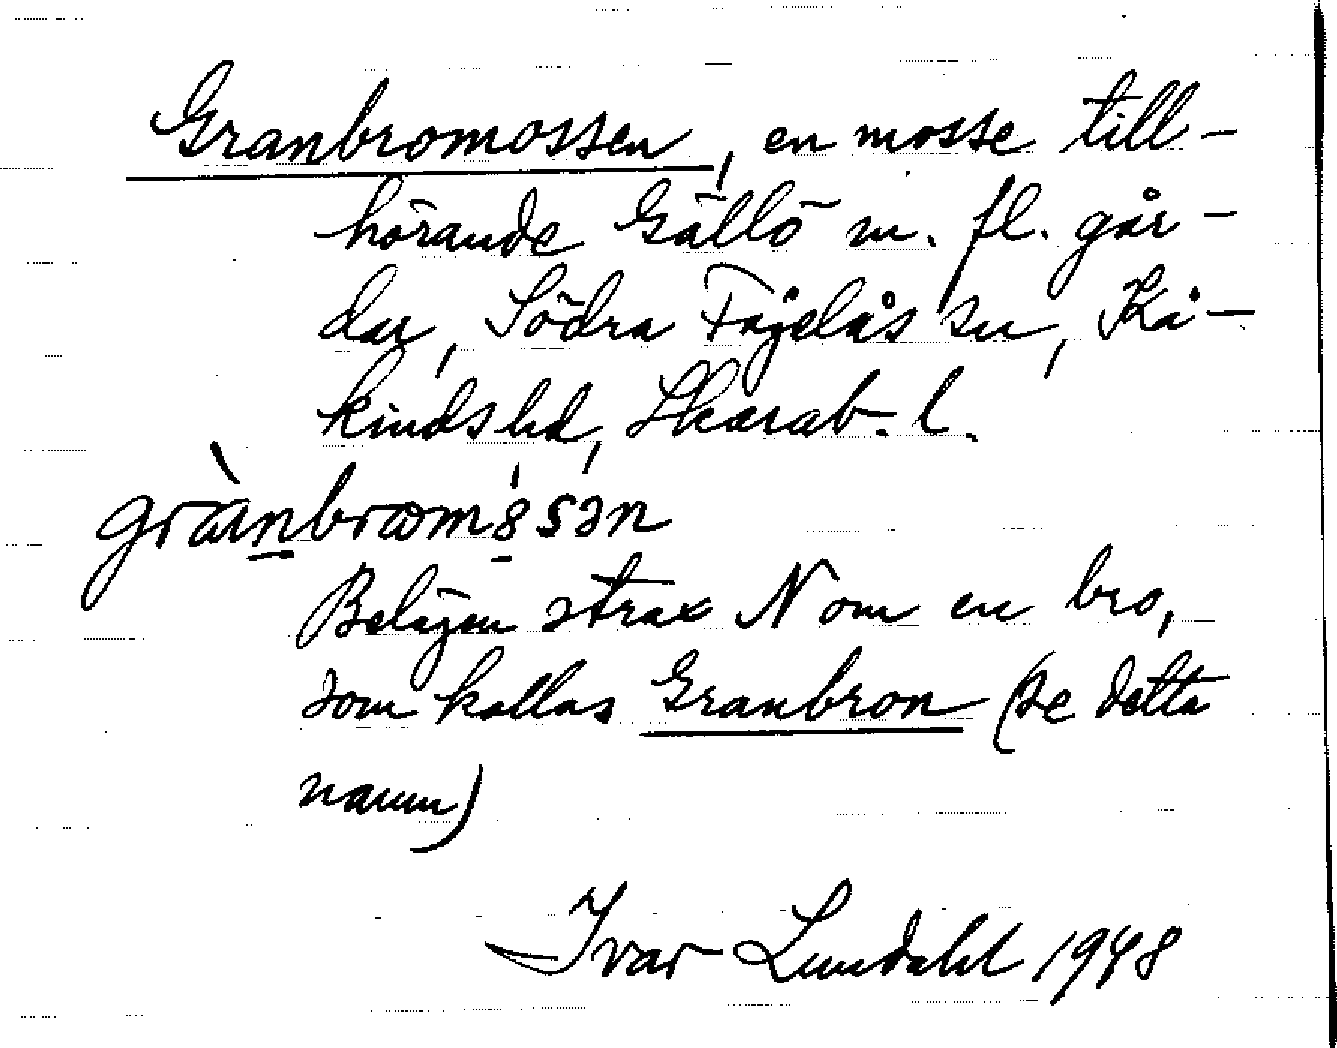 Granbromossen, en mosse till-
hörande Gällö m. fl. går-
dar, Södra Fågelås sn, Kå-
kinds hd, Skarab. l.
grànbrωm'8sən
Belägen strax N om en bro,
som kallas Granbron (se detta
namn)
Ivar Lundahl 1948